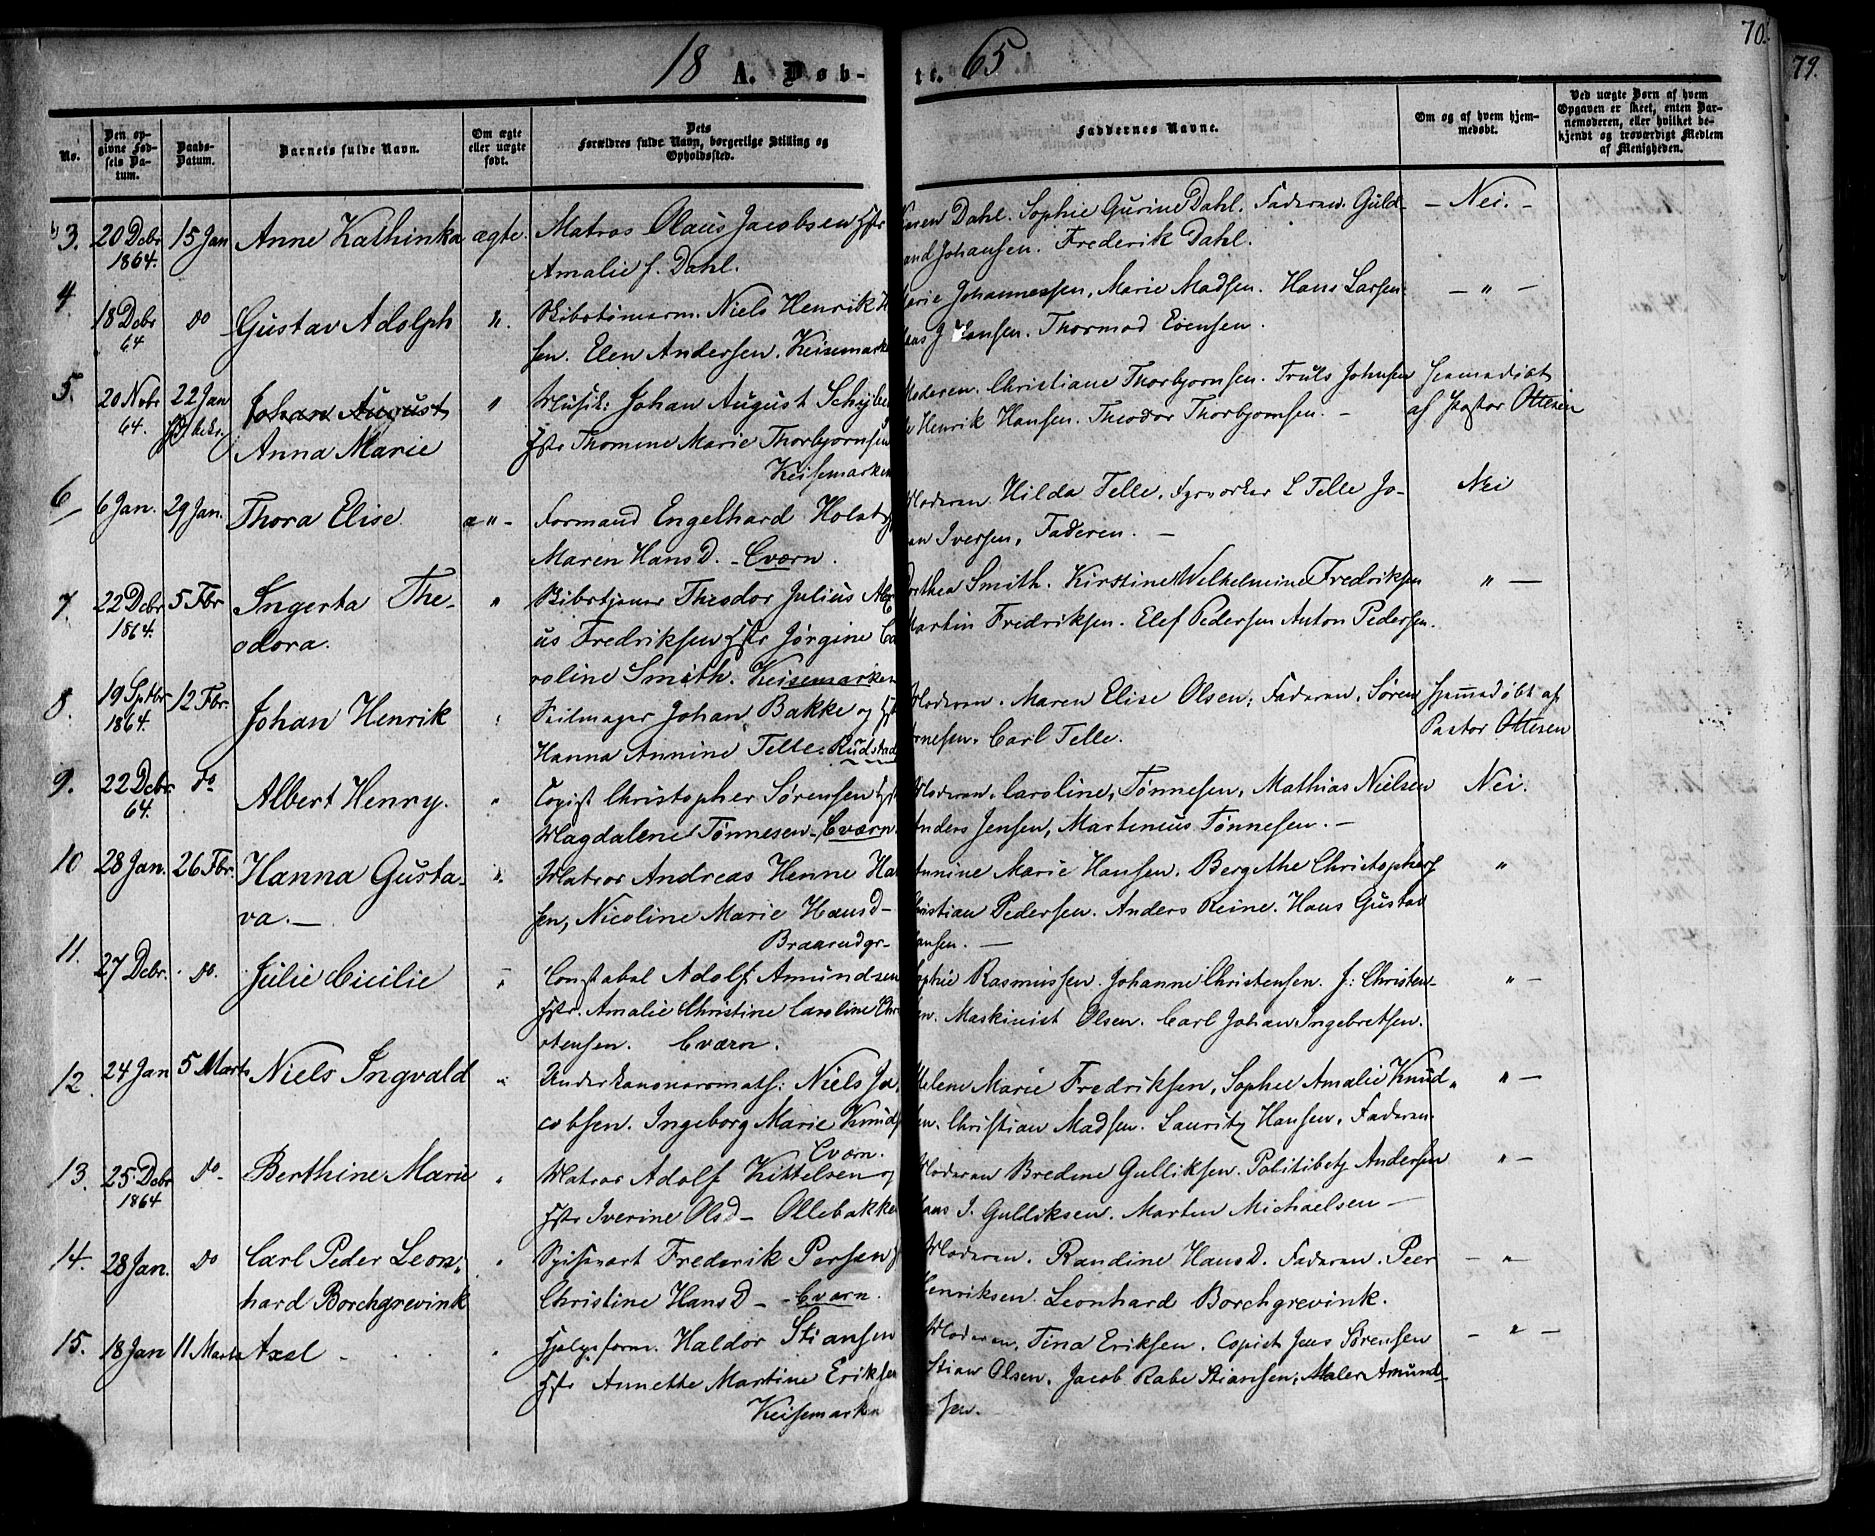 18 A. Døb- te. 65
70.
79.
No. | Den opgivne Fødsels Datum. | Daabs-Datum. | Barnets fulde Navn. | Om ægte eller uægte født. | Dets Forældres fulde Navn, borgerlige Stilling og Opholdssted. | Faddernes Navne. | Om og af hvem hjemmedøbt. | Ved uægte Børn af hvem Opgaven er skeet, enten Barnemoderen, eller hvilket bekjendt og troværdigt Medlem af Menigheden.
3. 20 Debr 15 Jan Anne Kathinka ægte. Matros Olaus Jacobsen Hstr Karen Dahl. Sophie Gurine Dahl. Faderen. Guld- – Nei. –
1864. Amalie f. Dahl. and Johansen. Frederik Dahl.
4. 18 Debr do Gustav Adolph ". Skibstømerm. Niels Henrik Marie Johannessen, Marie Madsen. Hans Larsen. – " –
64 sen. Elen Andersen. Keisemarken Hansen. Thormod Evensen.
5. 20 Nobr 22 Jan Johan August " Musik: Johan August Moderen. Christiane Thorbjornsen. Truls Johnsen Hjemmedöbt
64. Anna Marie Hstr Thomine Marie Thorbjornsen Henrik Hansen. Theodor Thorbjornsen. – af Pastor Ottesen
Keisemarken
6 6 Jan. 29 Jan. Thora Elise. " – Formand Engelhard Holst Moderen. Hilda Telle. Fyrverker L Telle Jo- Nei
Maren HansD. – Cværn. an Iversen, Faderen. –
7. 22 Debr 5 Fbr Ingerta The- " Skibstjener Theodor Julius Dorthea Smith. Kirstine Welhelmine Fredriksen " –
1864. odora. us Fredriksen Hstr Jørgine Ca Martin Fredriksen. Elef Pedersen Anton Pedersen.
roline Smith. Keisemarken
8. 19 Sptbr 12 Fbr. Johan Henrik " Seilmager Johan Bakke og Hst Moderen. Maren Elise Olsen, Faderen, Søren Hjemmedöbt af
1864. Hanna Annine Telle. Rudstad Carl Telle. Pastor Ottesen
9. 22 Debr do Albert Henry. " Copist Christopher Sørensen Hst Moderen, Caroline, Tønnesen, Mathias Nielsen Nei.
64. Magdalene Tønnesen – Cværn. Anders Jensen, Martinius Tønnesen. –
10 28 Jan. 26 Fbr. Hanna Gusta- ". Matros Andreas Henne Han Annine Marie Hansen. Bergithe Christophers "
va. – sen, Nicoline Marie HansD – Christian Pedersen. Anders Reine. Hans Gustav
Braarudgr– Hansen. –
11. 27 Debr. do. Julie Cicilie " Constabel Adolf Amundsen Sophie Rasmussen. Johanne Christensen. J: Christen- " –
Hstr. Amalie Christine Caroline Chri sen. Maskinist Olsen. Carl Johan Ingebretsen.
stensen. Cværn.
12. 24 Jan 5 Marts Niels Ingvald " Underkanoneromats: Niels Ja Helene Marie Fredriksen, Sophie Amalie Knud " –
cobsen. Ingeborg Marie Knuds en. Christian Madsen. Lauritz Hansen, Faderen.
Cværn.
13. 25 Debr do. Berthine Marie " Matros Adolf Kittelsen og Moderen Bredine Gulliksen. Politibetj Andersen " –
1864 Hstr Iverine OlsD – Ollebakken Hans J. Gulliksen. Marten Michaelsen –
14. 28 Jan. do Carl Peder Leon- " Spisevært Frederik Persen Moderen. Randine HansD. Faderen. Peer – "
hard Borchgrevink Christine HansD – Cværn. Henriksen. Leonhard Borchgrevink.
15. 18 Jan 11 Marts Axel – " Hjelpeform. Haldor Stiansen Moderen, Tina Eriksen. Copist Jens Sørensen – " –
Hstr Annette Martine Eriksen Stian Olsen, Jacob Rabe Stiansen, Maler Amund-
Keisemarken sen.